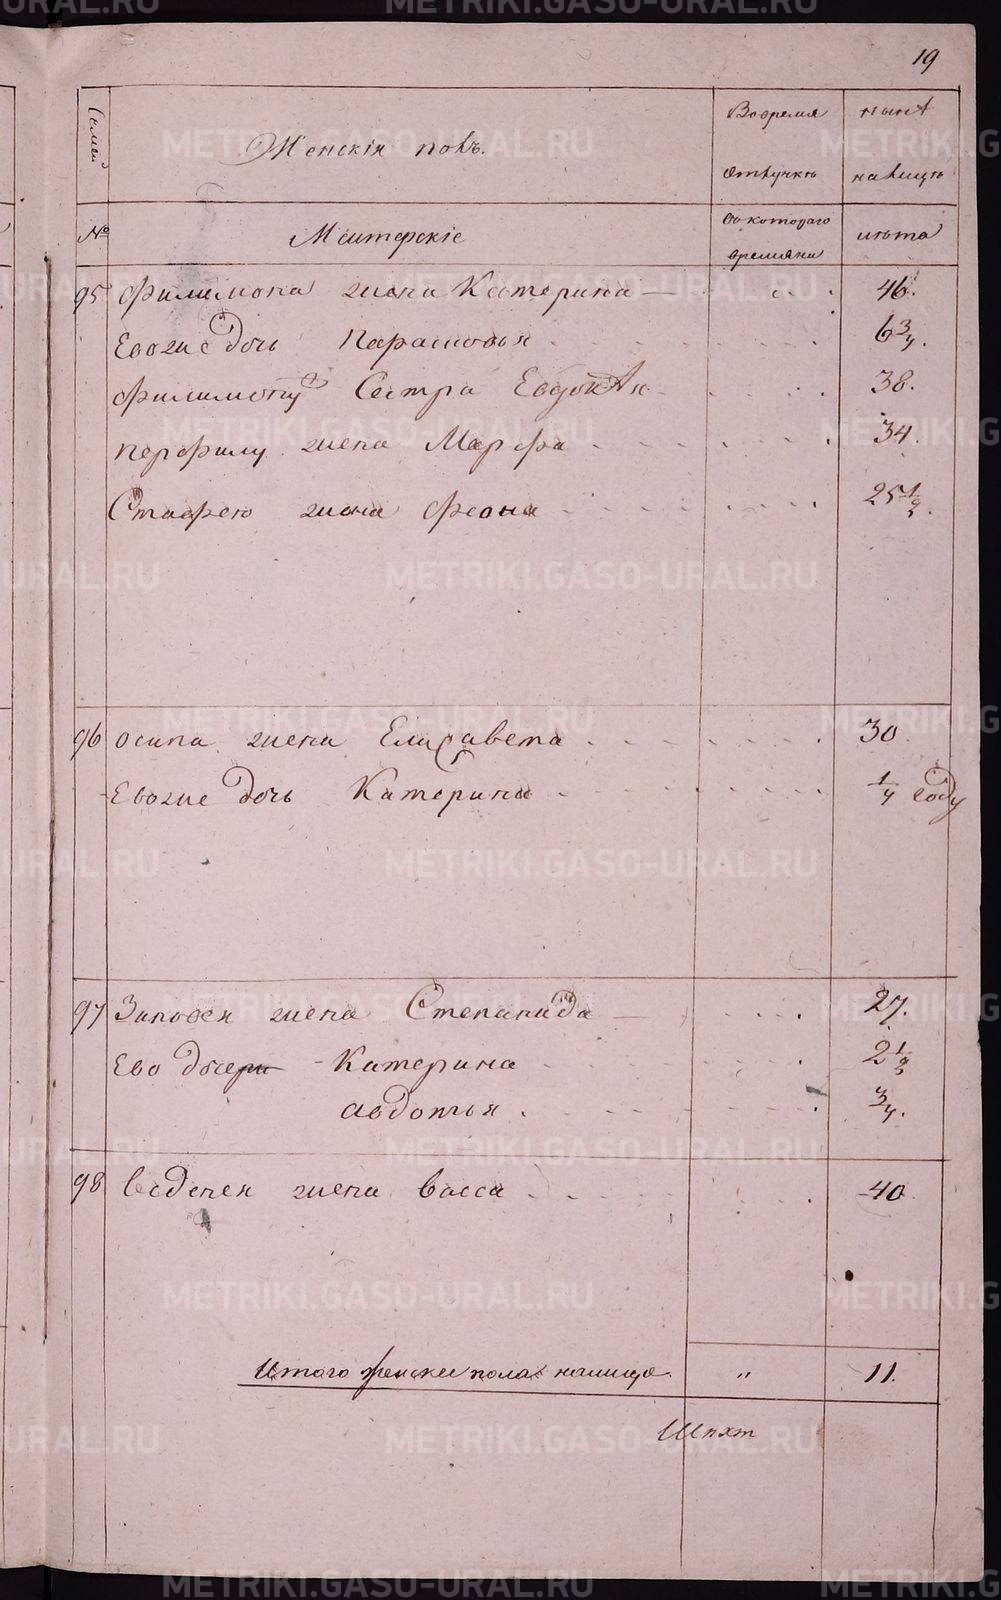 19
Семей
Женскій полъ.
Во время
нынѣ
отлучкѣ
на лицѣ
№
Мастерскіе
съ котораго
времяни
лѣта
95 Филимона жена Катерина 46.
Евоже дочь Парасковья 6 3/4.
Филимону Сестра Евдокѣя 38.
перфилу жена Марфа 34.
жена 25 1/2.
96 осипа жена Елисавета 30
Евоже дочь Катерина 1/4 году
97 Зиновея жена Степанида 27.
Ево дочери Катерина 2 1/2
авдотья 3/4.
98 веденея жена васса 40
Итого женска пола налицо. " 11.
METRIKI.GASO-URAL.RU